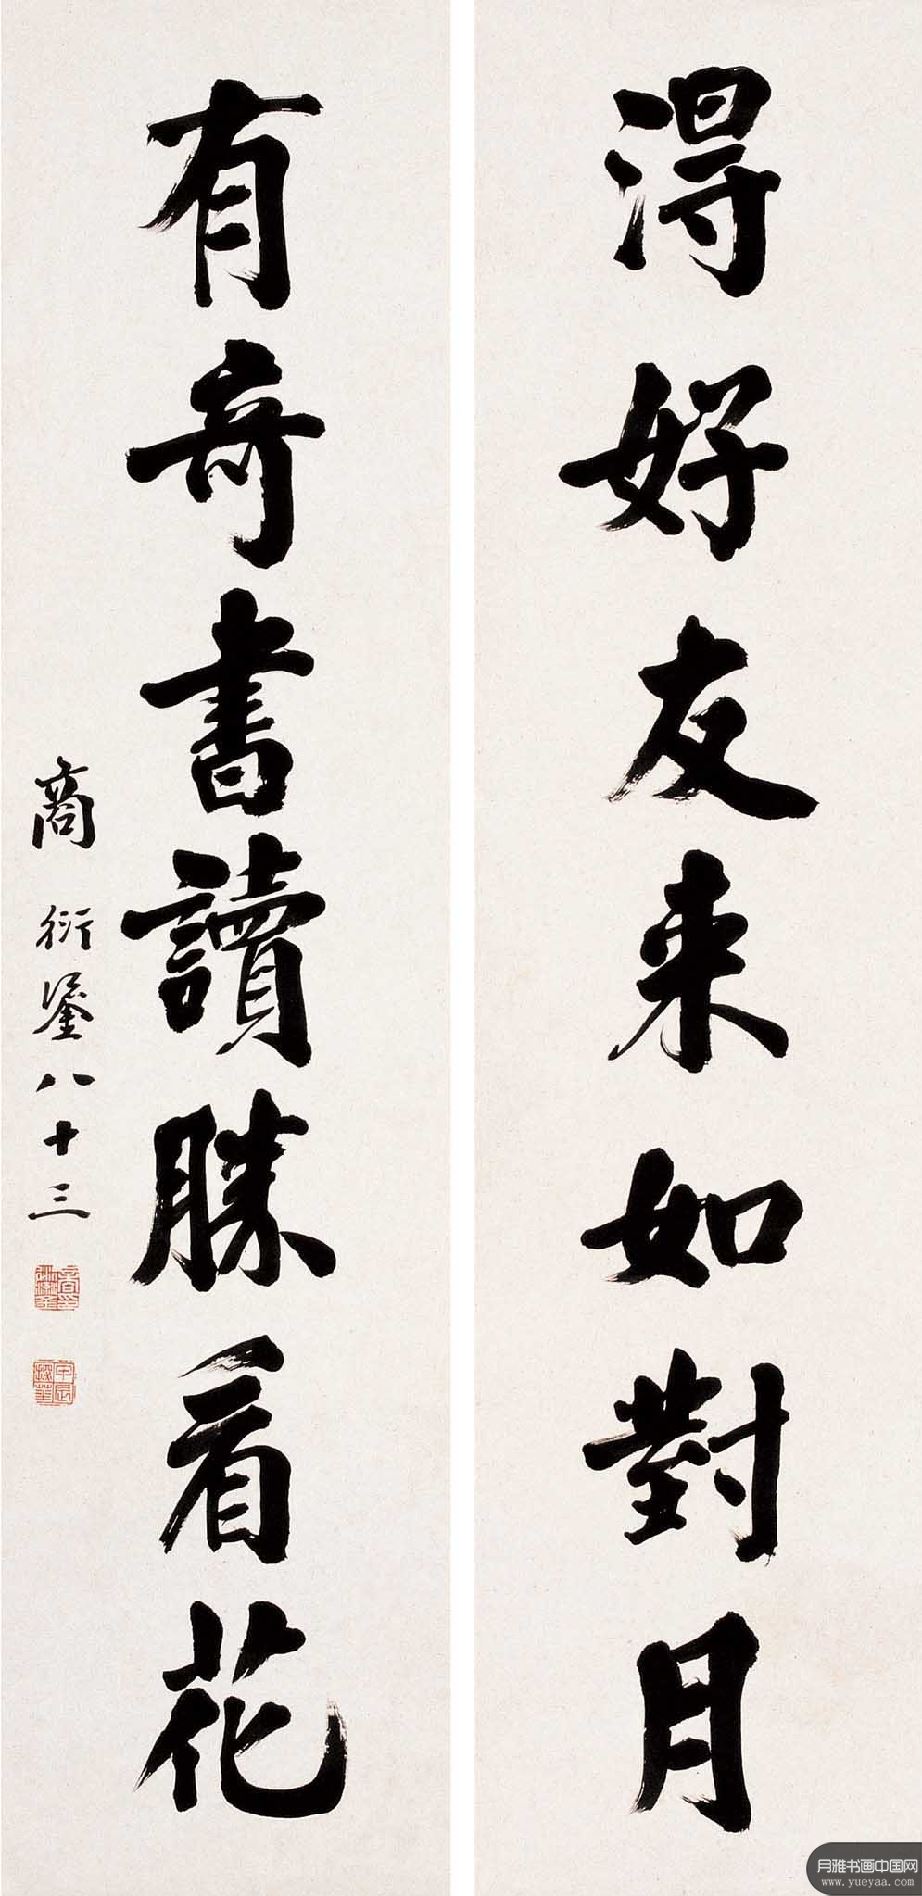 得好友来如對月
有奇書讀勝看花
商衍鎏八十三
月雅书画中国网
www.yueyaa.com